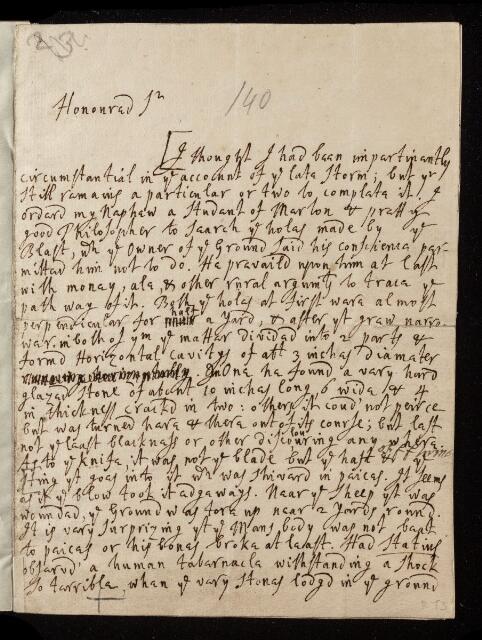 252.
140
Honourd Sr
[I thought I had been impertinently
circumstantial in ye account of ye late storm; but yr
still remains a particular or two to complete it. I
orderd my Nephew a Student of Merton & pretty
good Philosopher to search ye holes made by ye
Blast, wh ye owner of ye Ground said his conscience per-
mitted him not to do. He prevaild upon him at last
with money, ale & other rural argumts to trace ye
path way of it. Both ye holes at first were almost
perpendicular for half a yard, & after yt grew narro-
wer. in both of ym ye matter divided into 2 parts &
formd Horizontal cavitys of abt 3 inches diameter
In one he found a very hard
glazed stone of about 10 inches long 6 wide & 4
in thickness crackd in two: others it coud not peirce
but was turned here & there out of its course; but left
not ye least blackness or other discolouring any where.
As to ye knife, it was not ye blade but ye haft &
thing yt goes into it wh was shiverd in peices. It seems
as if ye blow took it edgeways. Near ye sheep yt was
wounded, ye Ground was tore up near 2 yards round.
It is very surprizing yt ye Mans body was not beat
to peices or his bones broke at least. Had Statius
observd a human tabernacle withstanding a shock
so terrible, when ye very stones lodgd in ye ground